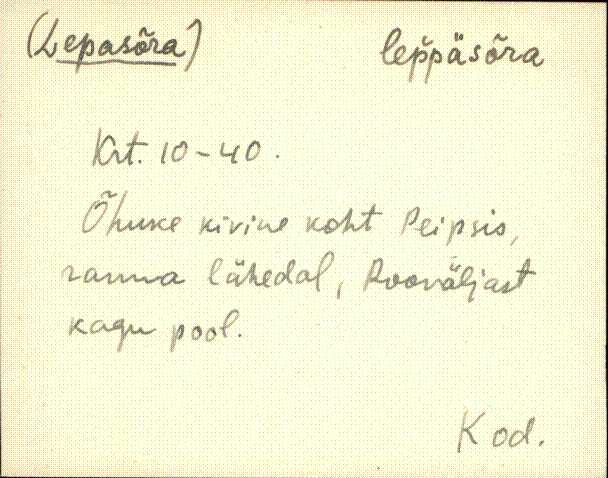 (Lepasõra) lep̆päsõra
Krt. 10-40.
Õhuke kivine koht Peipsis,
ranna lähedal, Rooväljast
kagu pool.
Kod.